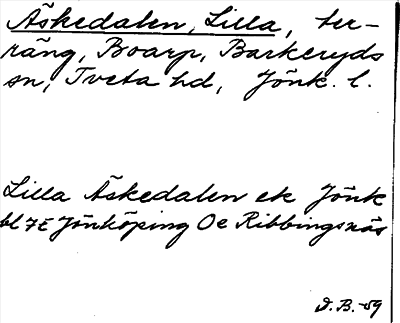 Äskedalen, Lilla, ter-
räng, Boarp, Barkeryds
sn, Tveta hd, Jönk. l.
Lilla Äskedalen ek Jönk
bl 7E Jönköping Oe Ribbingsnäs
D.B. -59